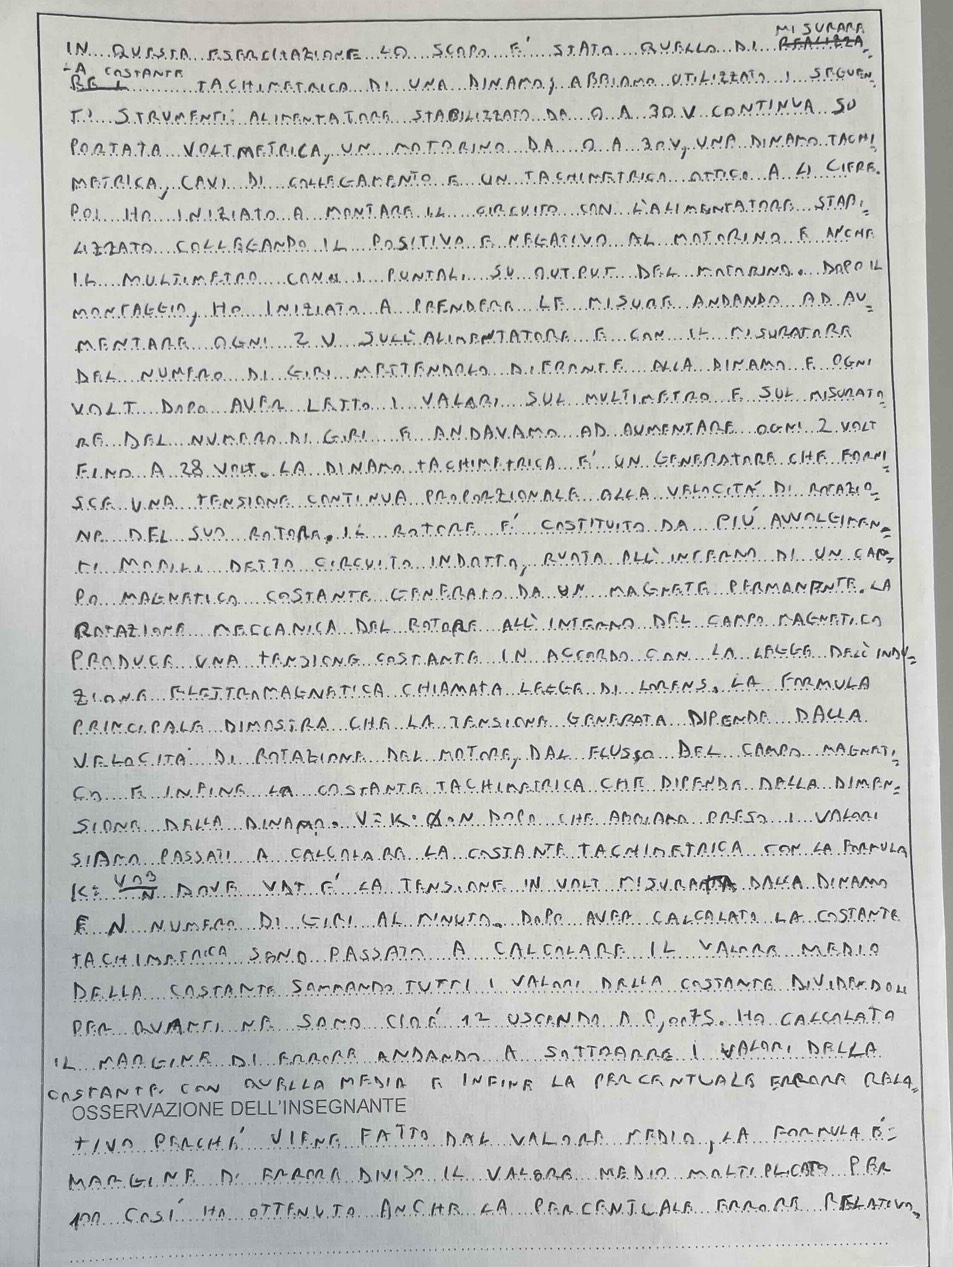 IN QUESTA ESERCITAZIONE LO SCOPO E' STATO QUELLO DI MISURARE
LA COSTANTE TACHIMETRICA DI UNA DINAMO, ABBIAMO UTILIZZATO I SEGUEN
TI STRUMENTI: ALIMENTATORE STABILIZZATO DA 0 A 30 V CONTINUA SU
PORTATA VOLTMETRICA, UN MOTORINO DA 0 A 30V, UNA DINAMO TACHI
METRICA, CAVI DI COLLEGAMENTO E UN TACHIMETRICO OTTICO A 4 CIFRE.
POI HO INIZIATO A MONTARE IL CIRCUITO CON L'ALIMENTATORE STABI-
LIZZATO COLLEGANDO IL POSITIVO E NEGATIVO AL MOTORINO E ANCHE
IL MULTIMETRO CON I PUNTALI SU OUTPUT DEL MOTORINO. DOPO IL
MONTAGGIO, HO INIZIATO A PRENDERE LE MISURE ANDANDO AD AU-
MENTARE OGNI 2 V SULL'ALIMENTATORE E CON IL MISURATORE
DEL NUMERO DI GIRI METTENDOLO DI FRONTE ALLA DINAMO E OGNI
VOLT DOPO AVER LETTO I VALORI SUL MULTIMETRO E SUL MISURATO
RE DEL NUMERO DI GIRI E ANDAVAMO AD AUMENTARE OGNI 2 VOLT
FINO A 28 VOLT. LA DINAMO TACHIMETRICA E' UN GENERATORE CHE FORNI
SCE UNA TENSIONE CONTINUA PROPORZIONALE ALLA VELOCITÀ DI ROTAZIO-
NE DEL SUO ROTORE. IL ROTORE E' COSTITUITO DA PIÙ AVVOLGIMEN-
TI MOBILI DETTO CIRCUITO INDOTTO, RUOTA ALL'INTERNO DI UN CAM-
PO MAGNETICO COSTANTE GENERATO DA UN MAGNETE PERMANENTE. LA
ROTAZIONE MECCANICA DEL ROTORE ALL'INTERNO DEL CAMPO MAGNETICO
PRODUCE UNA TENSIONE COSTANTE IN ACCORDO CON LA LEGGE DELL'INDU-
ZIONE ELETTROMAGNETICA CHIAMATA LEGGE DI LORENS. LA FORMULA
PRINCIPALE DIMOSTRA CHE LA TENSIONE GENERATA DIPENDE DALLA
VELOCITÀ DI ROTAZIONE DEL MOTORE, DAL FLUSSO DEL CAMPO MAGNETI-
CO E INFINE LA COSTANTE TACHIMETRICA CHE DIPENDE DALLA DIMEN-
SIONE DELLA DINAMO. V=K·Ø·N DOPO CHE ABBIAMO PRESO I VALORI
SIAMO PASSATI A CALCOLARE LA COSTANTE TACHIMETRICA CON LA FORMULA
K= /N DOVE E' LA TENSIONE IN VOLT MISURATA DALLA DINAMO
E N NUMERO DI GIRI AL MINUTO. DOPO AVER CALCOLATO LA COSTANTE
TACHIMETRICA SONO PASSATO A CALCOLARE IL VALORE MEDIO
DELLA COSTANTE SOMMANDO TUTTI I VALORI DELLA COSTANTE DIVIDEDOLI
PER QUANTI NE SONO CIOÈ 12 USCENDO A 0,0075. HO CALCOLATO
IL MARGINE DI ERRORE ANDANDO A SOTTRARRE I VALORI DELLA
COSTANTE CON QUELLA MEDIA E INFINE LA PERCENTUALE ERRORE RELA-
OSSERVAZIONE DELL'INSEGNANTE
TIVO PERCHÉ VIENE FATTO DAL VALORE MEDIO, LA FORMULA È:
MARGINE DI ERRORE DIVISO IL VALORE MEDIO MOLTIPLICATO PER
100 COSÌ HO OTTENUTO ANCHE LA PERCENTUALE ERRORE RELATIVO.